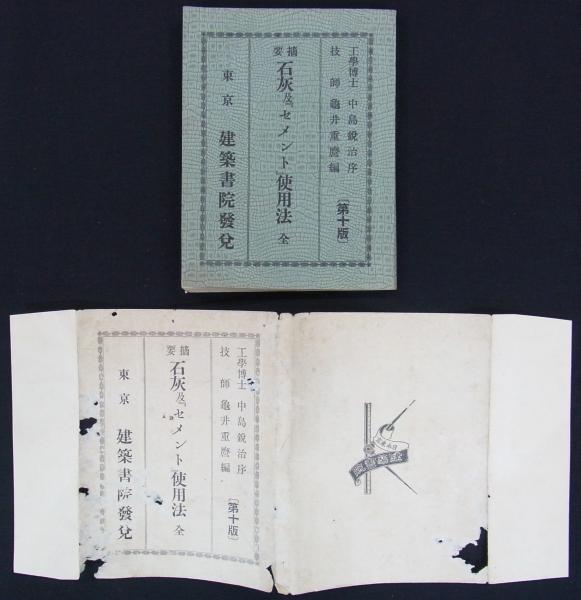 工學博士 中島銳治序
技師 龜井重麿編
〔第十版〕
摘要 石灰及ヒセメント使用法 全
東京 建築書院發兌
工學博士 中島銳治序
技師 龜井重麿編
〔第十版〕
摘要 石灰及ヒセメント使用法 全
東京 建築書院發兌